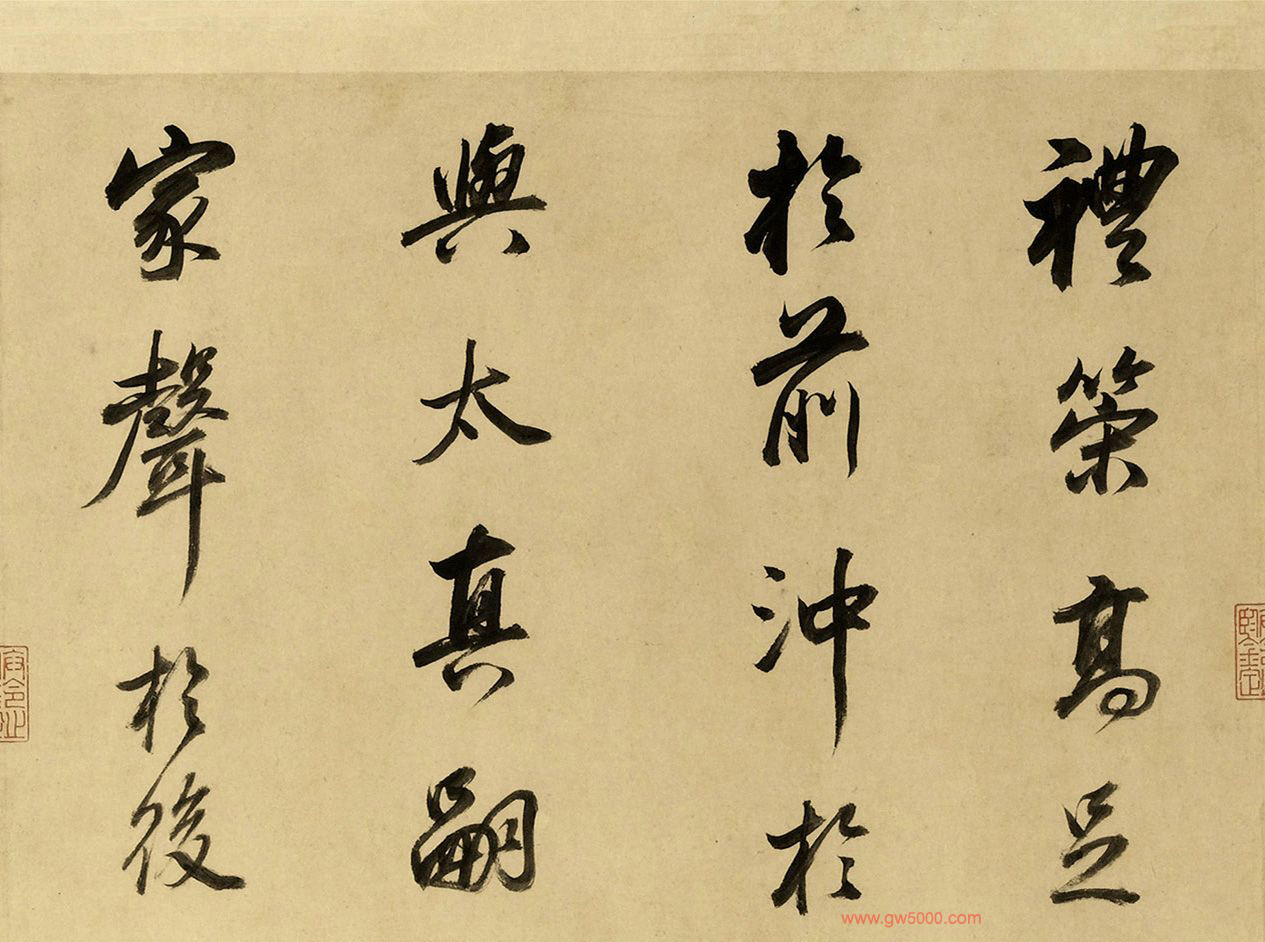 禮策高足
於前沖於
與太真嗣
家聲於後
www.gw5000.com